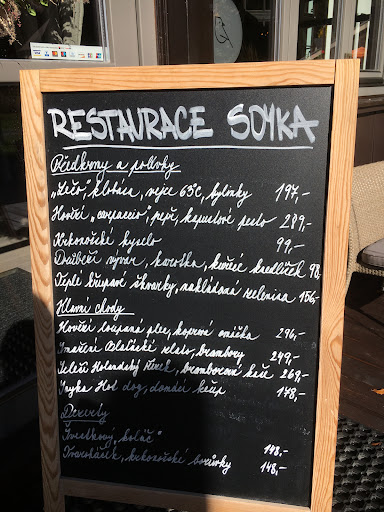 RESTAURACE SOYKA
Předkrmy a polévky
"Lečo", klobása, vejce 63°C, bylinky 197,-
Hovězí "carpaccio", pepř, kapustové pesto 289,-
Krkonošské kyselo 99,-
Drůbeží vývar, karotka, kuřecí knedlíček 98,-
Teplé křupavé škvarky, nakládaná zelenina 156,-
Hlavní chody
Hovězí loupaná plec, koprová omáčka 296,-
Smažené Olešnické relato, brambory 249,-
Telecí Holandský řízek, bramborová kaše 269,-
Soyka Hot dog, domácí kečup 178,-
Dezerty
Švestkový "koláč" 148,-
Tvaroháček, krkonošské borůvky 148,-